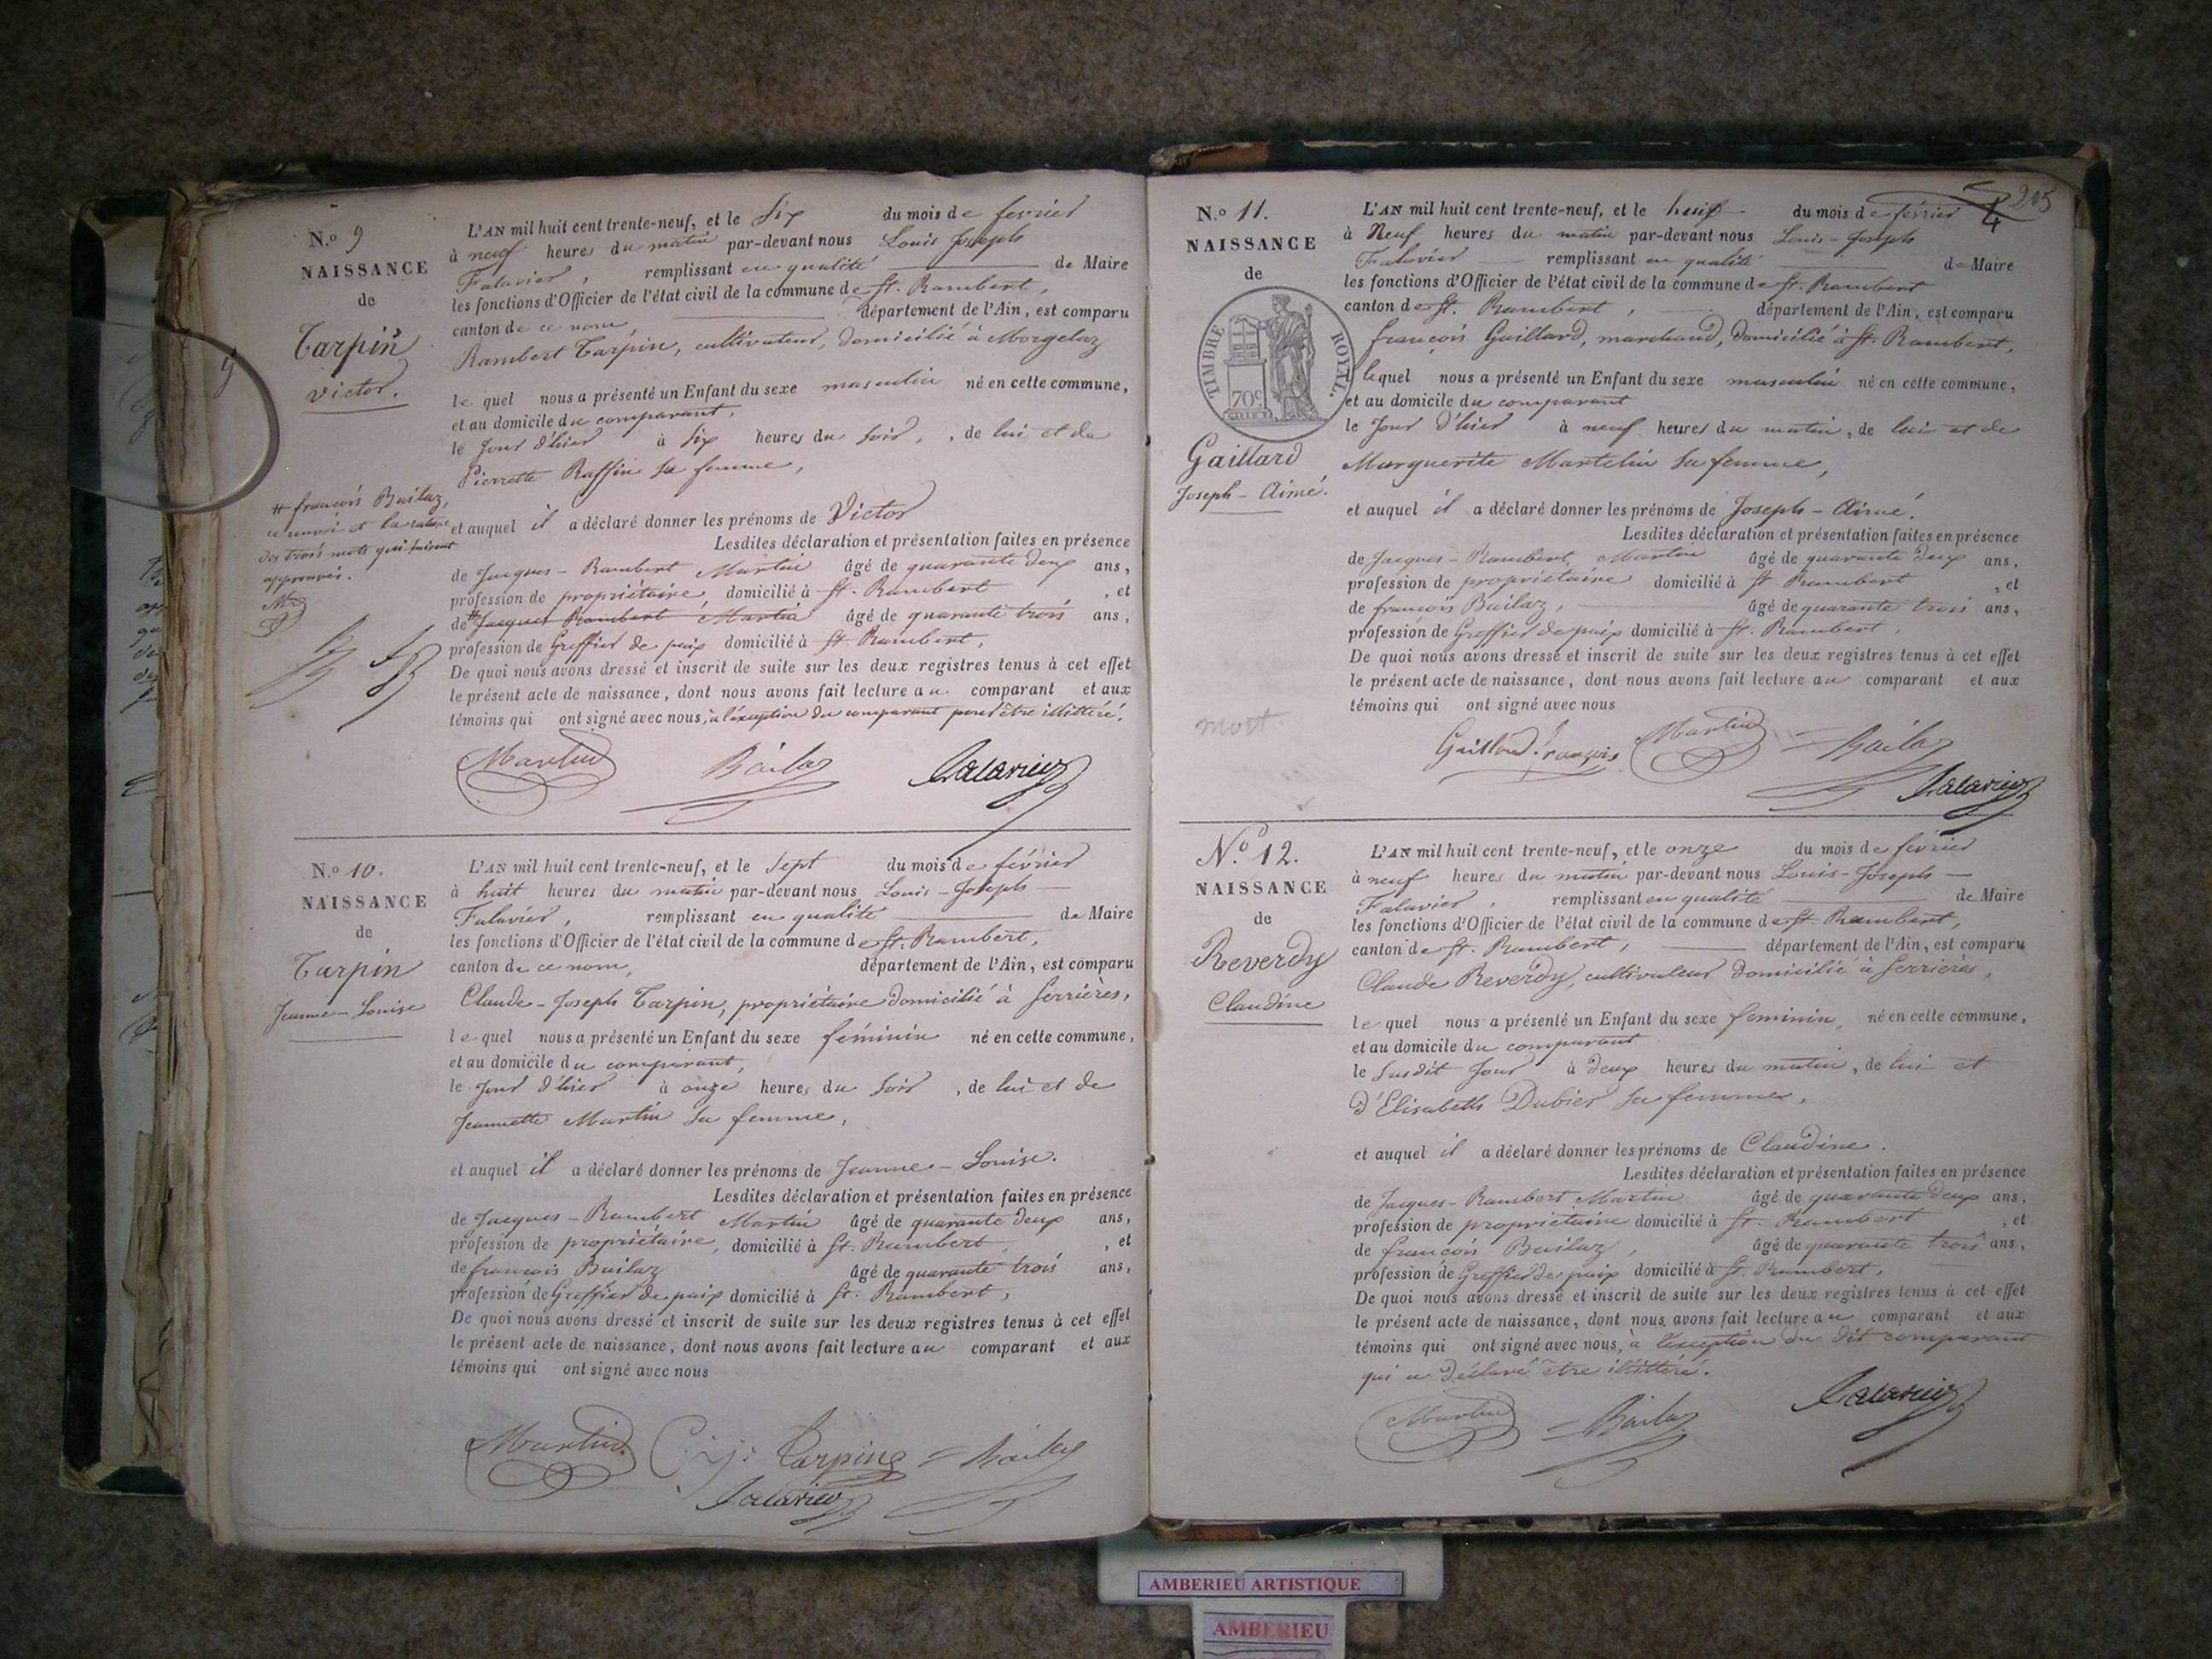 N.º 9
NAISSANCE
de
Tarpin
Victor.
L'AN mil huit cent trente-neuf, et le Six du mois de fevrier
à neuf heures du matin par-devant nous Louis Joseph
Falavier, remplissant en qualité de Maire
les fonctions d'Officier de l'état civil de la commune de St. Rambert,
canton de ce nom, département de l'Ain, est comparu
Rambert Tarpin, cultivateur, domicilié à Morgelaz
le quel nous a présenté un Enfant du sexe masculin né en cette commune,
et au domicile du comparant,
le Jour d'hier à Six heures du Soir, de lui et de
Pierrette Raffin sa femme,
et auquel il a déclaré donner les prénoms de Victor
Lesdites déclaration et présentation faites en présence
de Jacques-Rambert Martin âgé de quarante deux ans,
profession de propriétaire, domicilié à St. Rambert, et
de # Jacques Rambert Martin âgé de quarante trois ans,
profession de Greffier de paix domicilié à St. Rambert,
De quoi nous avons dressé et inscrit de suite sur les deux registres tenus à cet effet
le présent acte de naissance, dont nous avons fait lecture au comparant et aux
témoins qui ont signé avec nous, à l'exception du comparant pour être illittéré.
# françois Bailaz,
ce renvoi et la rature
des trois mots qui suivent
approuvés.
Martin Bailaz Falavier
N.º 10.
NAISSANCE
de
Tarpin
Jeanne-Louise
L'AN mil huit cent trente-neuf, et le Sept du mois de février
à huit heures du matin par-devant nous Louis-Joseph
Falavier, remplissant en qualité de Maire
les fonctions d'Officier de l'état civil de la commune de St. Rambert,
canton de ce nom, département de l'Ain, est comparu
Claude-Joseph Tarpin, propriétaire domicilié à Serrières,
le quel nous a présenté un Enfant du sexe féminin né en cette commune,
et au domicile du comparant,
le Jour d'hier à onze heures du Soir, de lui et de
Jeannette Martin sa femme,
et auquel il a déclaré donner les prénoms de Jeanne-Louise.
Lesdites déclaration et présentation faites en présence
de Jacques-Rambert Martin âgé de quarante deux ans,
profession de propriétaire, domicilié à St. Rambert, et
de françois Bailaz âgé de quarante trois ans,
profession de Greffier de paix domicilié à St. Rambert,
De quoi nous avons dressé et inscrit de suite sur les deux registres tenus à cet effet
le présent acte de naissance, dont nous avons fait lecture au comparant et aux
témoins qui ont signé avec nous
Martin C. j. Tarpin Bailaz
Falavier
215
N.º 11.
NAISSANCE
de
TIMBRE ROYAL.
70c
Gaillard
Joseph-Aimé.
mort
L'AN mil huit cent trente-neuf, et le huit du mois de février
à Neuf heures du matin par-devant nous Louis-Joseph
Falavier remplissant en qualité de Maire
les fonctions d'Officier de l'état civil de la commune de St. Rambert
canton de St. Rambert, département de l'Ain, est comparu
françois Gaillard, marchand, domicilié à St. Rambert,
lequel nous a présenté un Enfant du sexe masculin né en cette commune,
et au domicile du comparant
le Jour d'hier à neuf heures du matin, de lui et de
Marguerite Martelin sa femme,
et auquel il a déclaré donner les prénoms de Joseph-Aimé.
Lesdites déclaration et présentation faites en présence
de Jacques-Rambert Martin âgé de quarante deux ans,
profession de propriétaire domicilié à St. Rambert, et
de françois Bailaz, âgé de quarante trois ans,
profession de Greffier de paix domicilié à St. Rambert,
De quoi nous avons dressé et inscrit de suite sur les deux registres tenus à cet effet
le présent acte de naissance, dont nous avons fait lecture au comparant et aux
témoins qui ont signé avec nous
Gaillard françois Martin Bailaz
Falavier
N.º 12.
NAISSANCE
de
Reverdy
Claudine
L'AN mil huit cent trente-neuf, et le onze du mois de février
à neuf heures du matin par-devant nous Louis-Joseph
Falavier, remplissant en qualité de Maire
les fonctions d'Officier de l'état civil de la commune de St. Rambert,
canton de St. Rambert, département de l'Ain, est comparu
Claude Reverdy, cultivateur domicilié à Serrières,
le quel nous a présenté un Enfant du sexe feminin, né en cette commune,
et au domicile du comparant
le Susdit Jour à deux heures du matin, de lui et
d'Elisabeth Dubier sa femme,
et auquel il a déclaré donner les prénoms de Claudine.
Lesdites déclaration et présentation faites en présence
de Jacques-Rambert Martin âgé de quarante deux ans,
profession de propriétaire domicilié à St. Rambert, et
de françois Bailaz, âgé de quarante trois ans,
profession de Greffier de paix domicilié à St. Rambert,
De quoi nous avons dressé et inscrit de suite sur les deux registres tenus à cet effet
le présent acte de naissance, dont nous avons fait lecture au comparant et aux
témoins qui ont signé avec nous, à l'exception du dit comparant
qui a déclaré être illittéré.
Martin Bailaz Falavier
AMBERIEU ARTISTIQUE
AMBERIEU